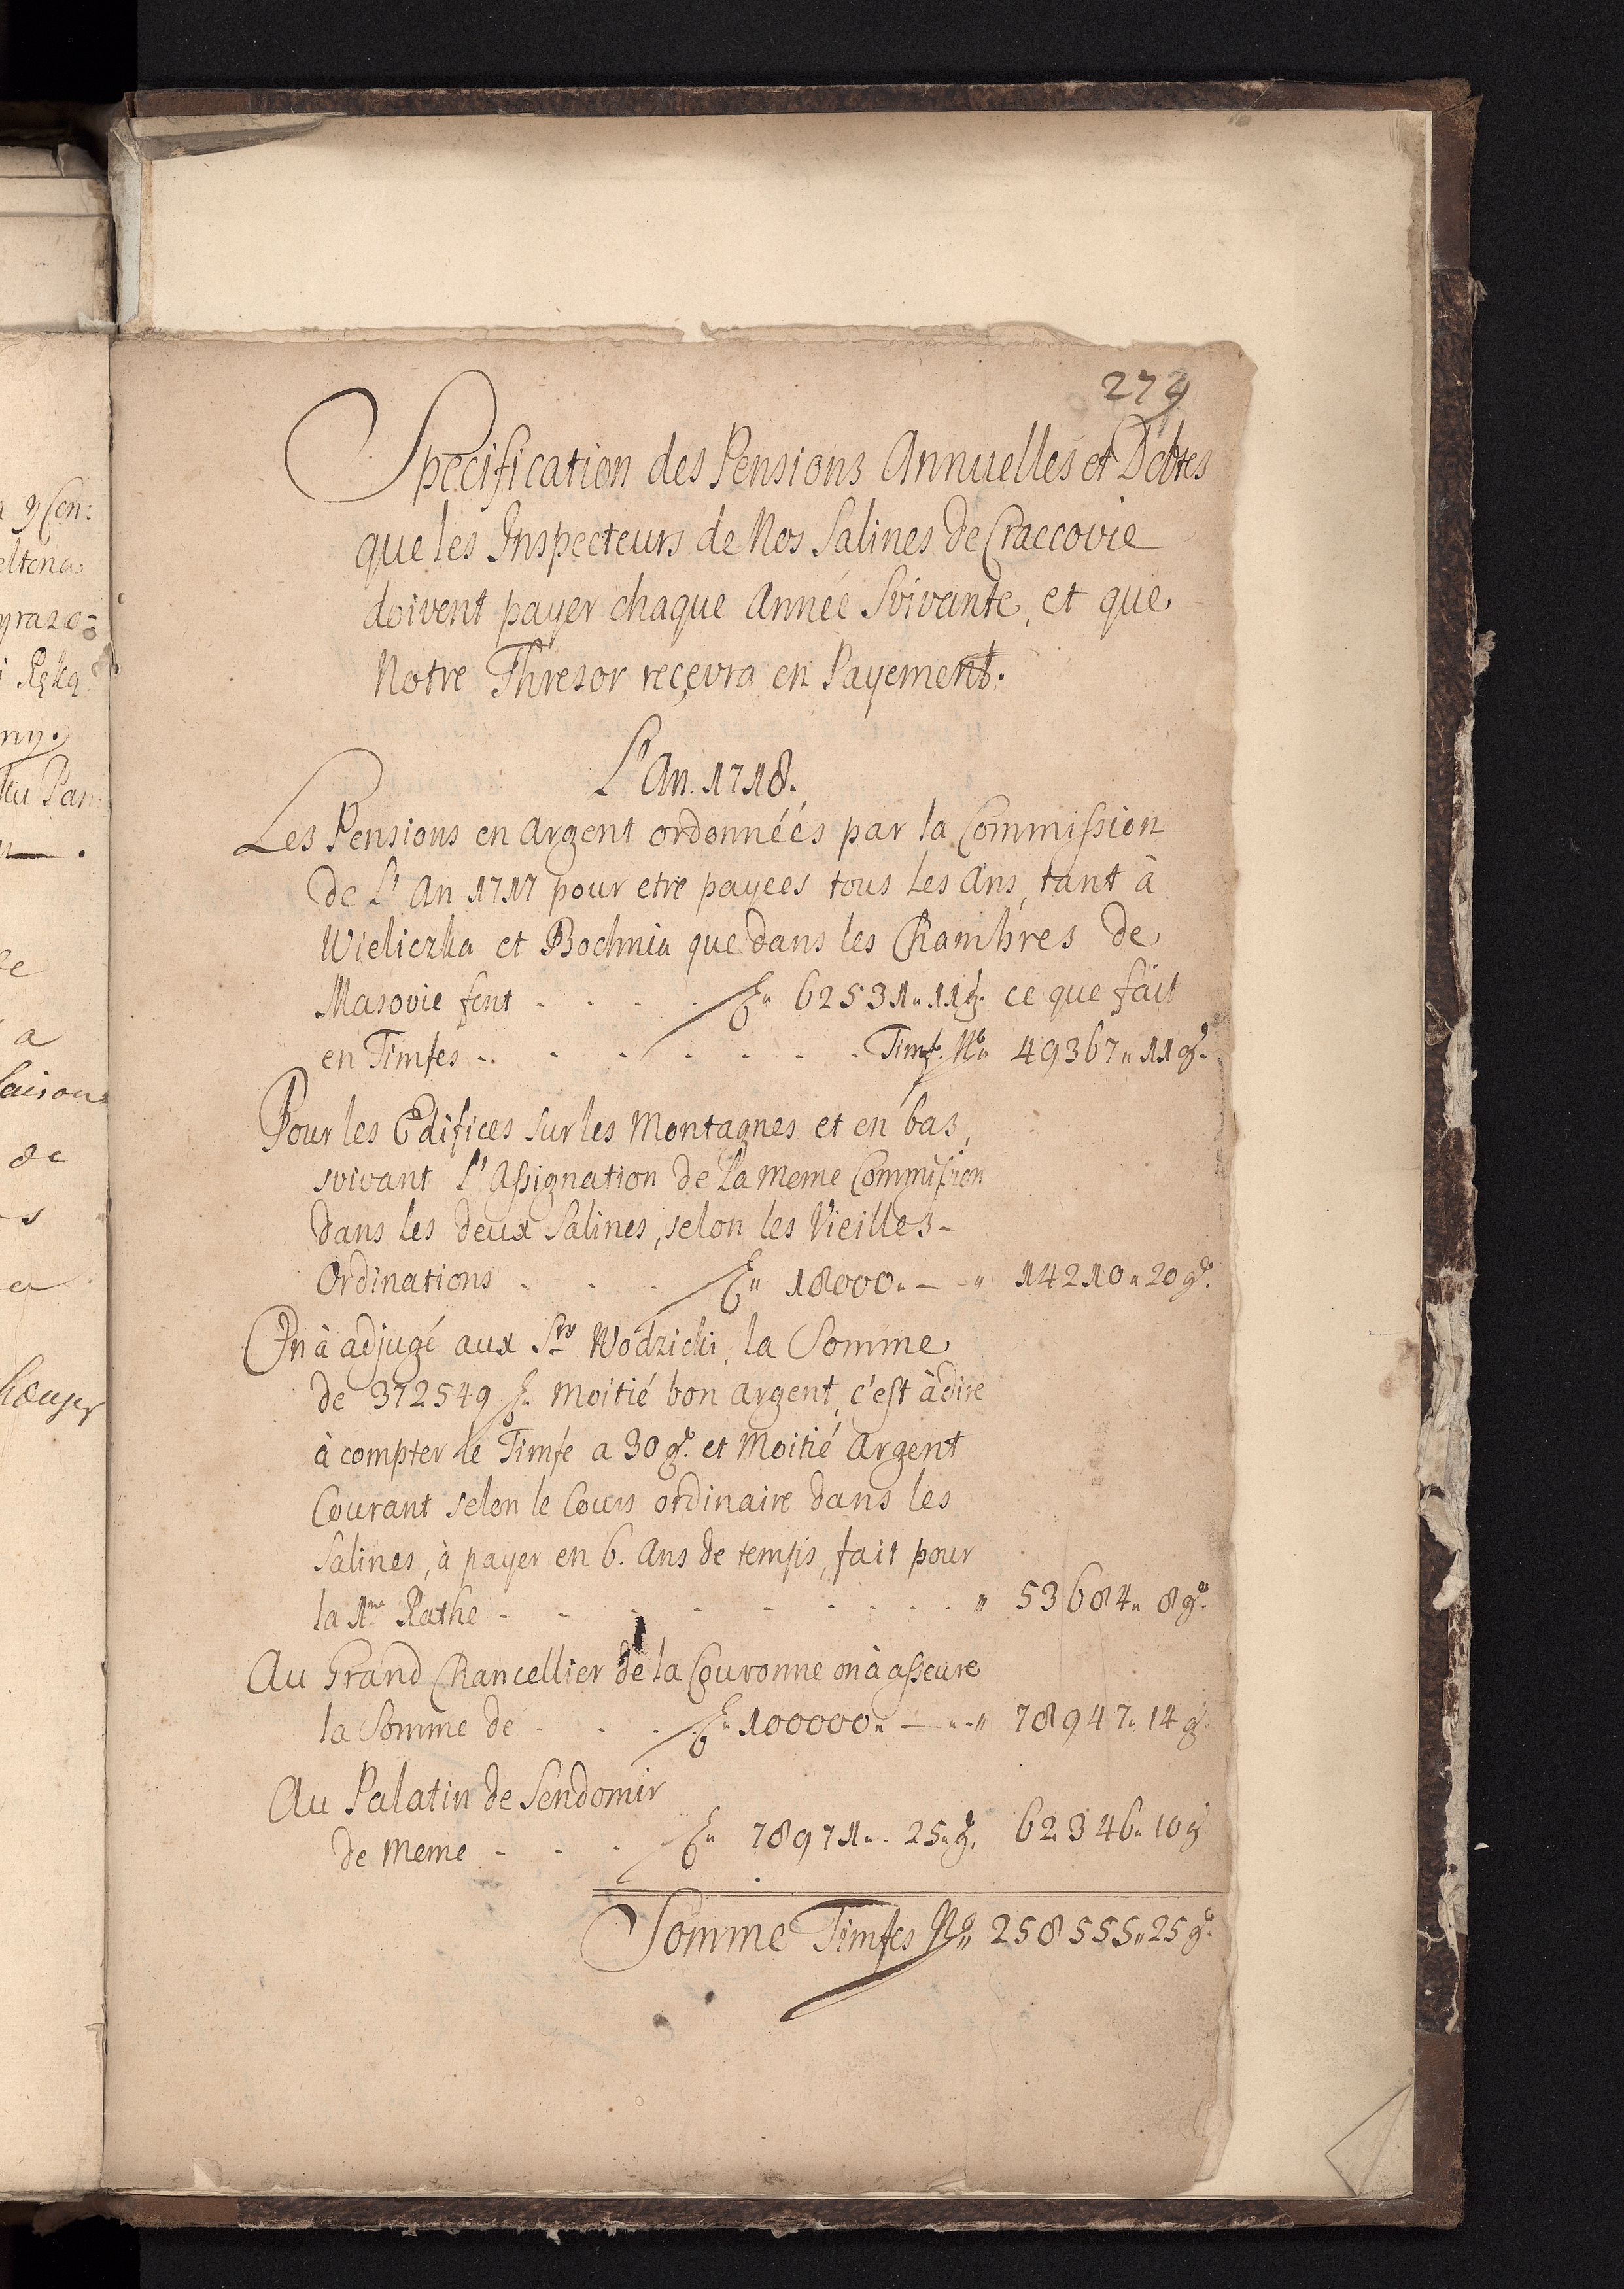 279
Specification des Pensions Annuelles et Debtes
que les Inspecteurs de Nos Salines de Craccovie
doivent payer chaque Année Svivante, et que
Notre Thresor reçevra en Payement.
L'An. 1718.
Les Pensions en argent ordonnéés par la Commission
de L'An 1717 pour etre payees tous les Ans, tant à
Wieliczka et Bochnia que dans les Chambres de
Masovie font 62531 " 11 g. ce que fait
en Timfes Timf. No " 49367 " 11 g.
Pour les Edifices sur les Montagnes et en bas,
svivant L'Assignation de La meme Commission
dans les deux Salines, selon les Vieilles
Ordinations 18000 " — " 14210 " 20 g.
On à adjugé aux Srs Wodzicki, la Somme
de 372549 Moitié bon argent, c'est à dire
à compter le Timfe a 30 g. et Moitié Argent
Courant selon le Cours ordinaire dans les
Salines, à payer en 6. Ans de temps, fait pour
la 1me Rathe " 53684 " 8 g.
Au Grand Chancellier de la Couronne on à asseure
la Somme de 100000 " — " 78947 " 14 g.
Au Palatin de Sendomir
de Meme 78971 " 25 " g. 62346 " 10 g
Somme Timfes No " 258555 " 25 g.